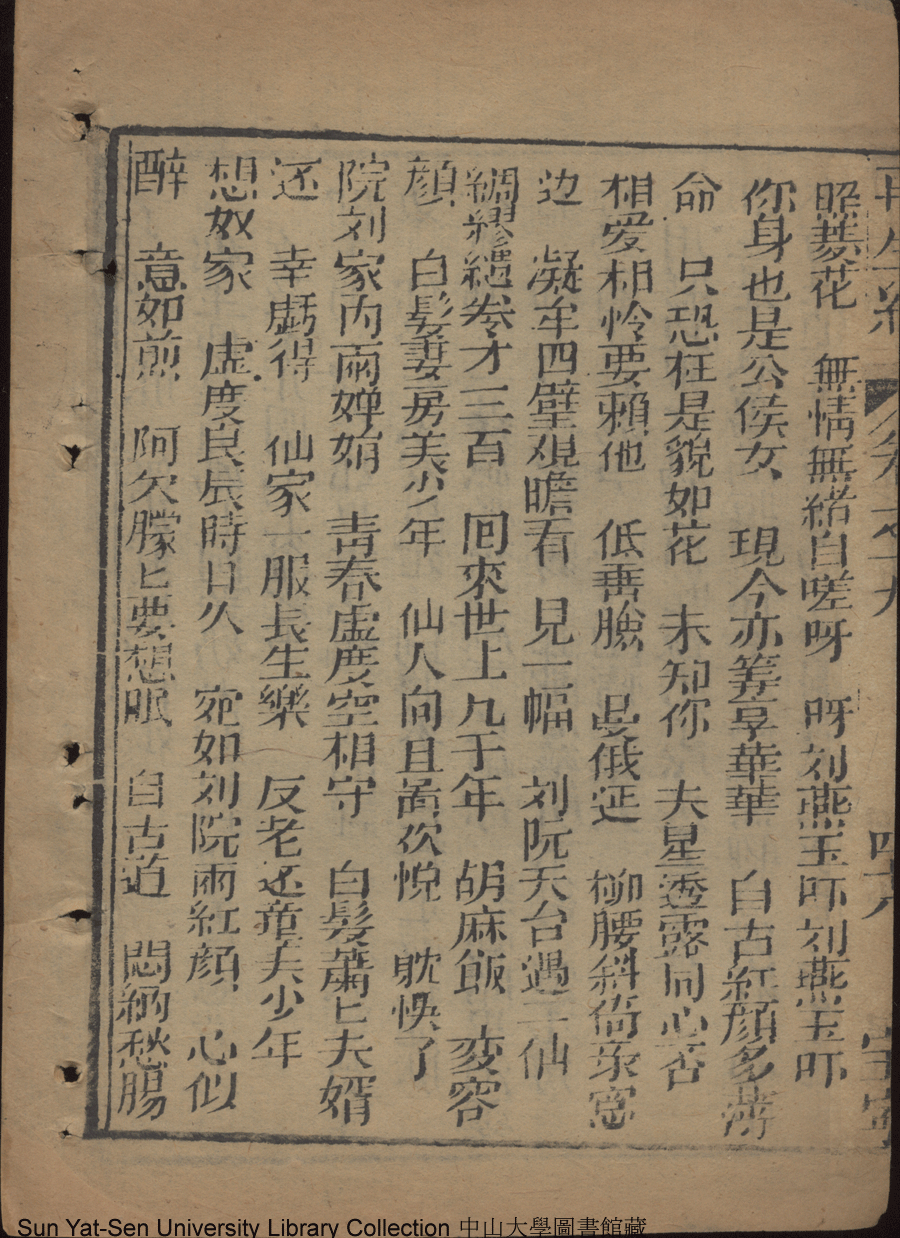 再生 卷之十九
照菱花　無情無緒自嗟呀　呀刘燕玉吓刘燕玉吓
你身也是公侯女　現今亦筭享華華　自古紅顏多薄
命　只恐枉是貌如花　未知你　夫星透露同心否
相愛相怜要賴他　低垂臉　曼俄延　柳腰斜倚
边　凝牟四壁覌瞻看　見一幅　刘阮天台遇二仙
綢繆繾卷才三百　囘來世上九千年　胡麻飯　变容
顏　白髮妻房美少年　仙人向且　欢悅　躭悞了
院刘家內兩婵娟　青春虛度空相守　白髮蕭匕夫婿
还　幸虧得　仙家一服長生藥　反老还童夫少年
想奴家　虛度良辰時日久　宛如刘院兩紅顏　心似
醉　意如煎　阿欠朦匕要想眠　自古道　悶納愁腸
Sun Yat-Sen University Library Collection 中山大學圖書館藏